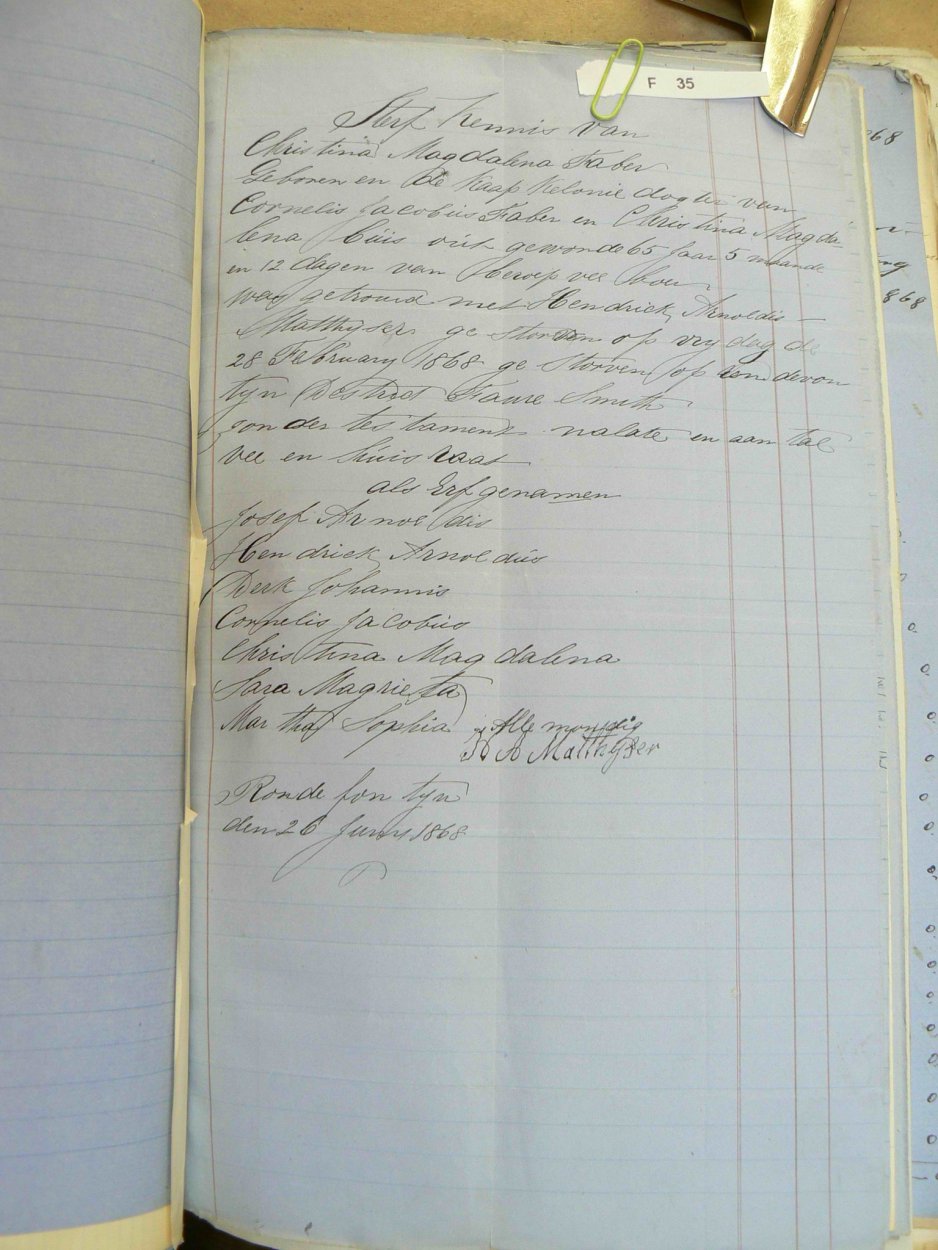 F 35
Sterf Kennis van
Christina Magdalena Faber
Geboren en de Kaap Kolonie dogter van
Cornelis Jacobus Faber en Christina Magda
lena Buis out gewonde 65 Jaar 5 maande
en 12 dagen van beroep vee boer
was getrouid met Hendrick Arnoldis
Matthyser ge storven op vry dag de
28 February 1868 ge storven op
tyn Destrict Faure Smith
sonder testament nalate en aan tal
vee en huis raat
als Erf genamen
Josef Arnoldis
Hendrick Arnoldus
Derk Johannis
Cornelis Jacobus
Christina Magdalena
Sara Magrieta
Martha Sophia Alle mondig
H A Matthyser
Ronde fon tyn
den 26 Juny 1868